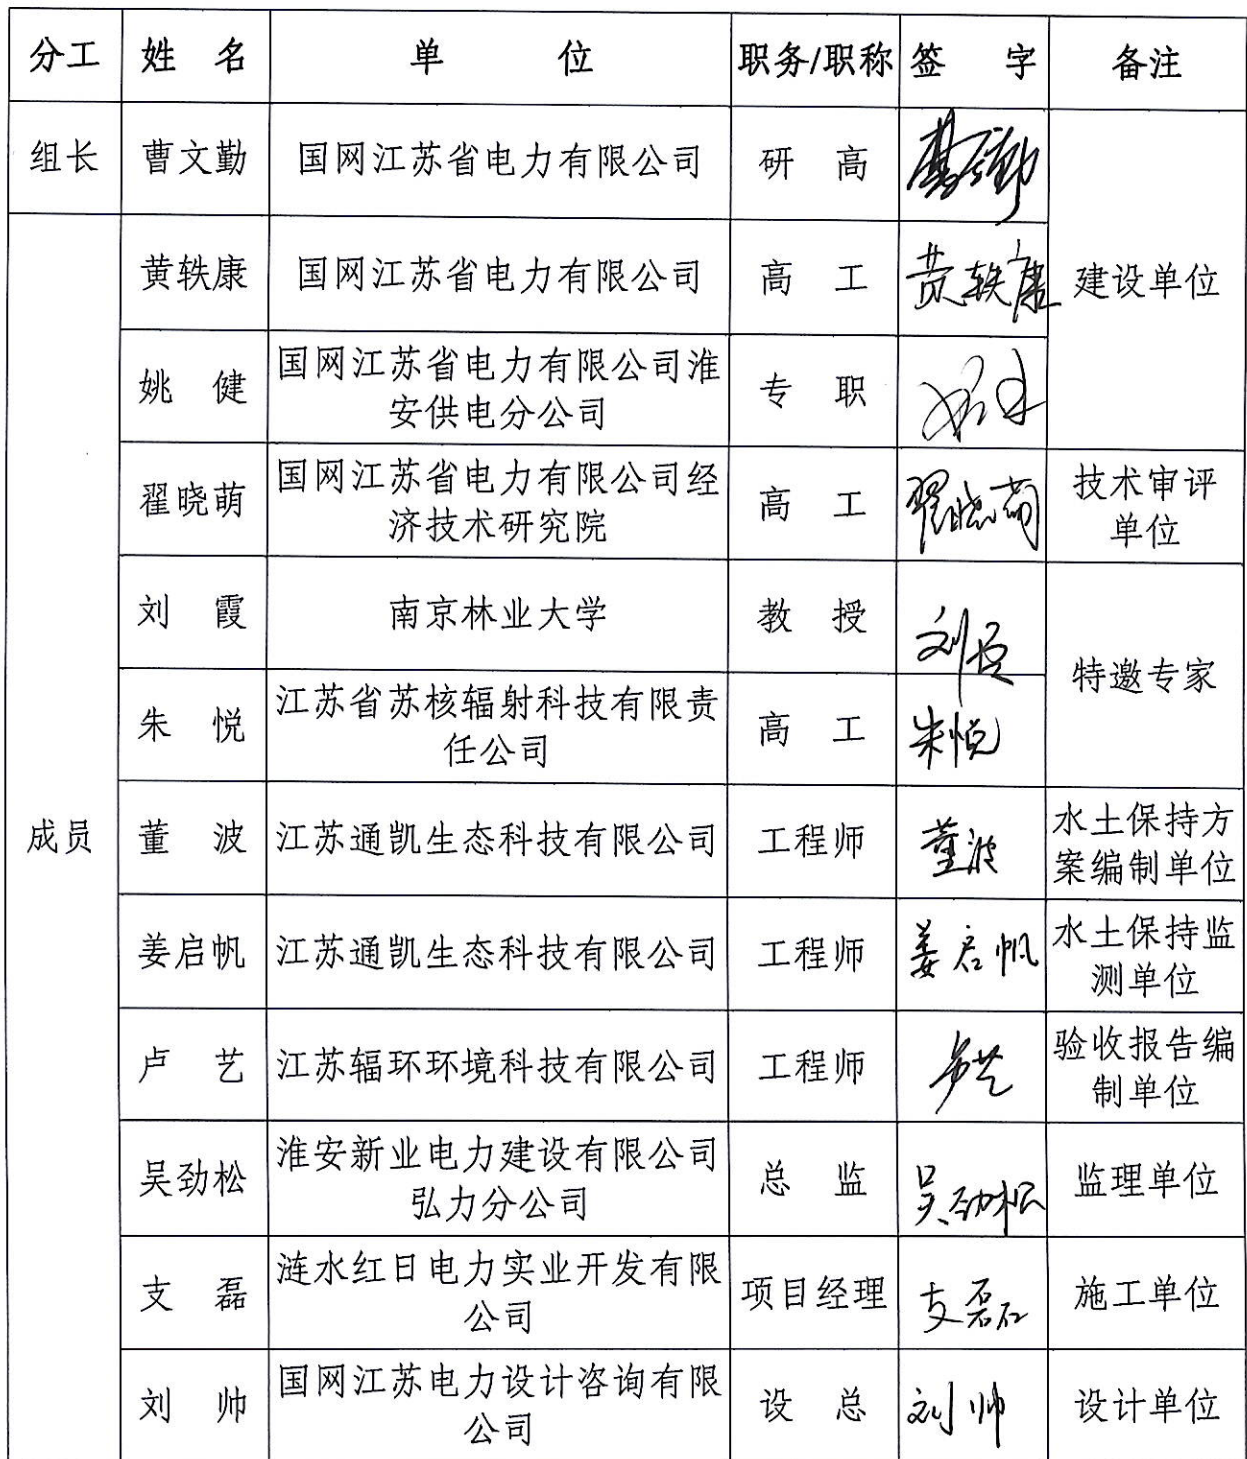 分工 姓 名 单 位 职务/职称 签 字 备注
组长 曹文勤 国网江苏省电力有限公司 研 高 曹文勤
黄轶康 国网江苏省电力有限公司 高 工 黄轶康 建设单位
姚 健 国网江苏省电力有限公司淮
安供电分公司 专 职
翟晓萌 国网江苏省电力有限公司经
济技术研究院 高 工 翟晓萌 技术审评
单位
刘 霞 南京林业大学 教 授 刘霞
特邀专家
朱 悦 江苏省苏核辐射科技有限责
任公司 高 工 朱悦
成员 董 波 江苏通凯生态科技有限公司 工程师 董波 水土保持方
案编制单位
姜启帆 江苏通凯生态科技有限公司 工程师 姜启帆 水土保持监
测单位
卢 艺 江苏辐环环境科技有限公司 工程师 卢艺 验收报告编
制单位
吴劲松 淮安新业电力建设有限公司
弘力分公司 总 监 吴劲松 监理单位
支 磊 涟水红日电力实业开发有限
公司 项目经理 支磊 施工单位
刘 帅 国网江苏电力设计咨询有限
公司 设 总 刘帅 设计单位